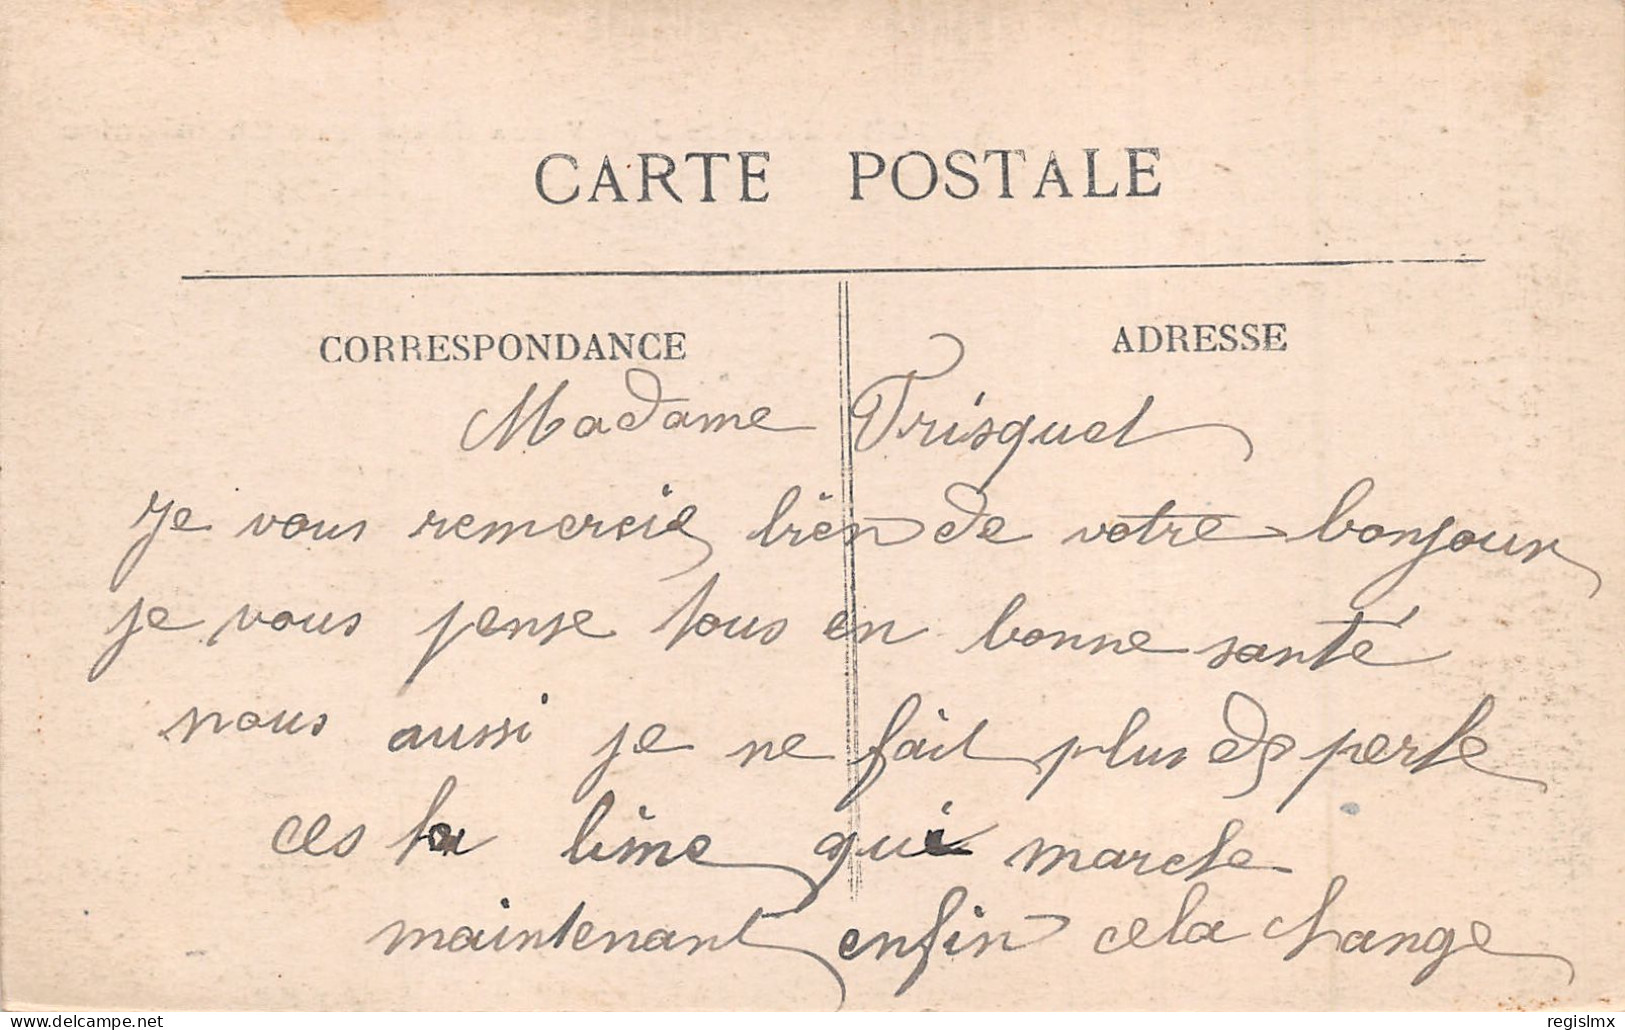 CARTE POSTALE
CORRESPONDANCE
ADRESSE
Madame Trisquet
Je vous remercie bien de votre bonjour
je vous pense tous en bonne santé
nous aussi je ne fait plus de perle
ces la lime qui marche
maintenant enfin cela change
www.delcampe.net
regislmx